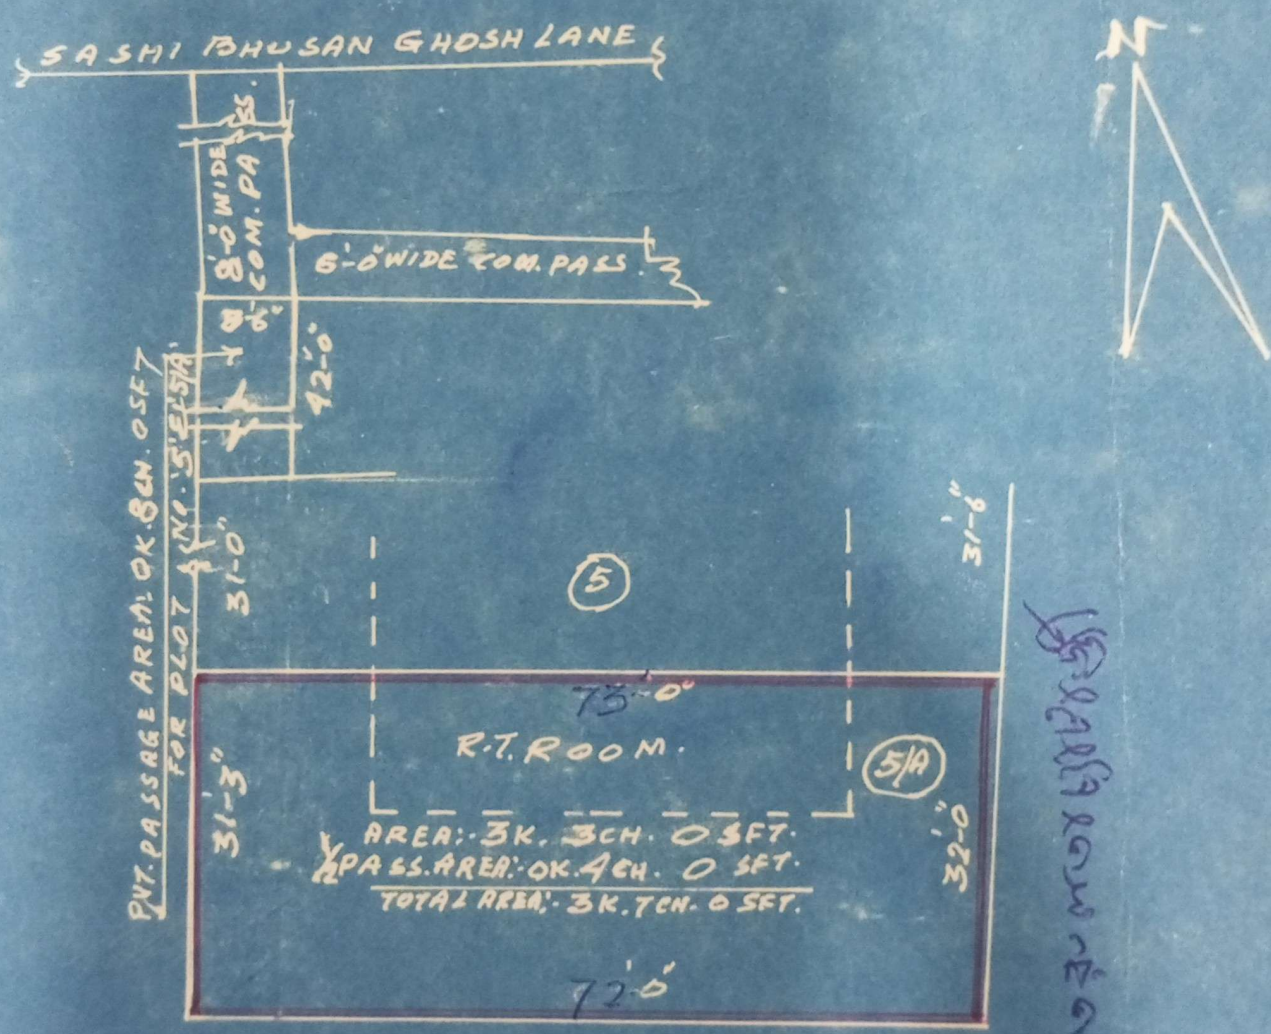 SASHI BHUSAN GHOSH LANE
N
8'-0" WIDE
COM. PASS.
6'-0" WIDE COM. PASS.
8'-6"
42'-0"
PVT. PASSAGE AREA:- 0K. 8CH. 0 SFT
FOR PLOT NO. '5' & '5/A'
31'-0"
31'-6"
5
73'-0"
R.T. ROOM.
5/A
31'-3"
32'-0"
AREA:- 3K. 3CH. 0 SFT.
½ PASS. AREA:- 0K. 4CH. 0 SFT.
TOTAL AREA:- 3K. 7CH. 0 SFT.
72'-0"